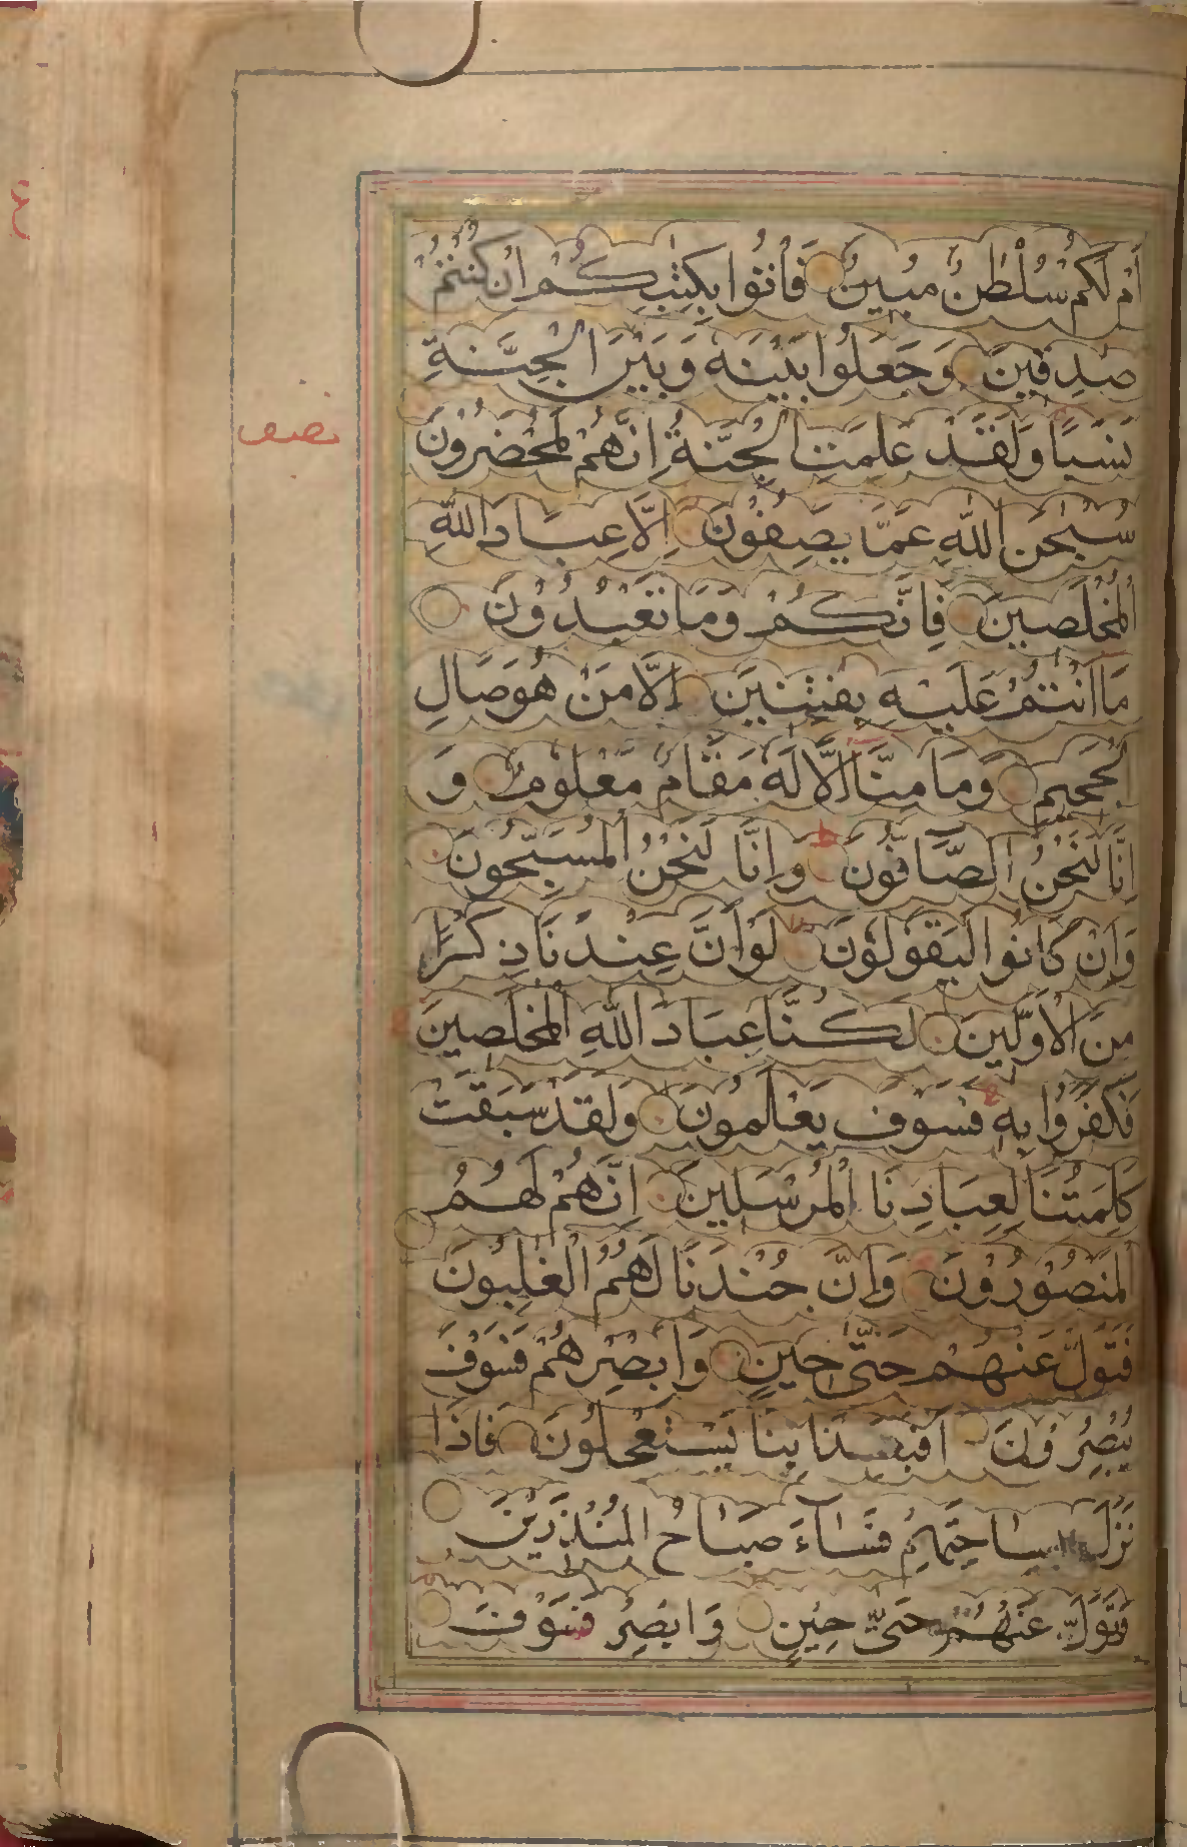 اَمْ لَكُمْ سُلْطٰنٌ مُبِينٌ فَاْتُوا بِكِتٰبِكُمْ اِنْ كُنْتُمْ
صٰدِقِينَ وَجَعَلُوا بَيْنَهٗ وَبَيْنَ الْجِنَّةِ
نَسَبًا وَلَقَدْ عَلِمَتِ الْجِنَّةُ اِنَّهُمْ لَمُحْضَرُونَ
نصف
سُبْحٰنَ اللّٰهِ عَمَّا يَصِفُونَ اِلَّا عِبَادَ اللّٰهِ
الْمُخْلَصِينَ فَاِنَّكُمْ وَمَا تَعْبُدُوْنَ
مَا اَنْتُمْ عَلَيْهِ بِفٰتِنِينَ اِلَّا مَنْ هُوَ صَالِ
الْجَحِيمِ وَمَا مِنَّا اِلَّا لَهٗ مَقَامٌ مَعْلُوْمٌ وَ
اِنَّا لَنَحْنُ الصَّافُّونَ وَاِنَّا لَنَحْنُ الْمُسَبِّحُونَ
وَاِنْ كَانُوا لَيَقُوْلُوْنَ لَوْ اَنَّ عِنْدَنَا ذِكْرًا
مِنَ الْاَوَّلِينَ لَكُنَّا عِبَادَ اللّٰهِ الْمُخْلَصِينَ
فَكَفَرُوْا بِهٖ فَسَوْفَ يَعْلَمُونَ وَلَقَدْ سَبَقَتْ
كَلِمَتُنَا لِعِبَادِنَا الْمُرْسَلِينَ اِنَّهُمْ لَهُمُ
الْمَنْصُوْرُوْنَ وَاِنَّ جُنْدَنَا لَهُمُ الْغٰلِبُونَ
فَتَوَلَّ عَنْهُمْ حَتّٰى حِينٍ وَاَبْصِرْهُمْ فَسَوْفَ
يُبْصِرُوْنَ اَفَبِعَذَابِنَا يَسْتَعْجِلُوْنَ فَاِذَا
نَزَلَ بِسَاحَتِهِمْ فَسَاۤءَ صَبَاحُ الْمُنْذَرِيْنَ
وَتَوَلَّ عَنْهُمْ حَتّٰى حِيْنٍ وَاَبْصِرْ فَسَوْفَ